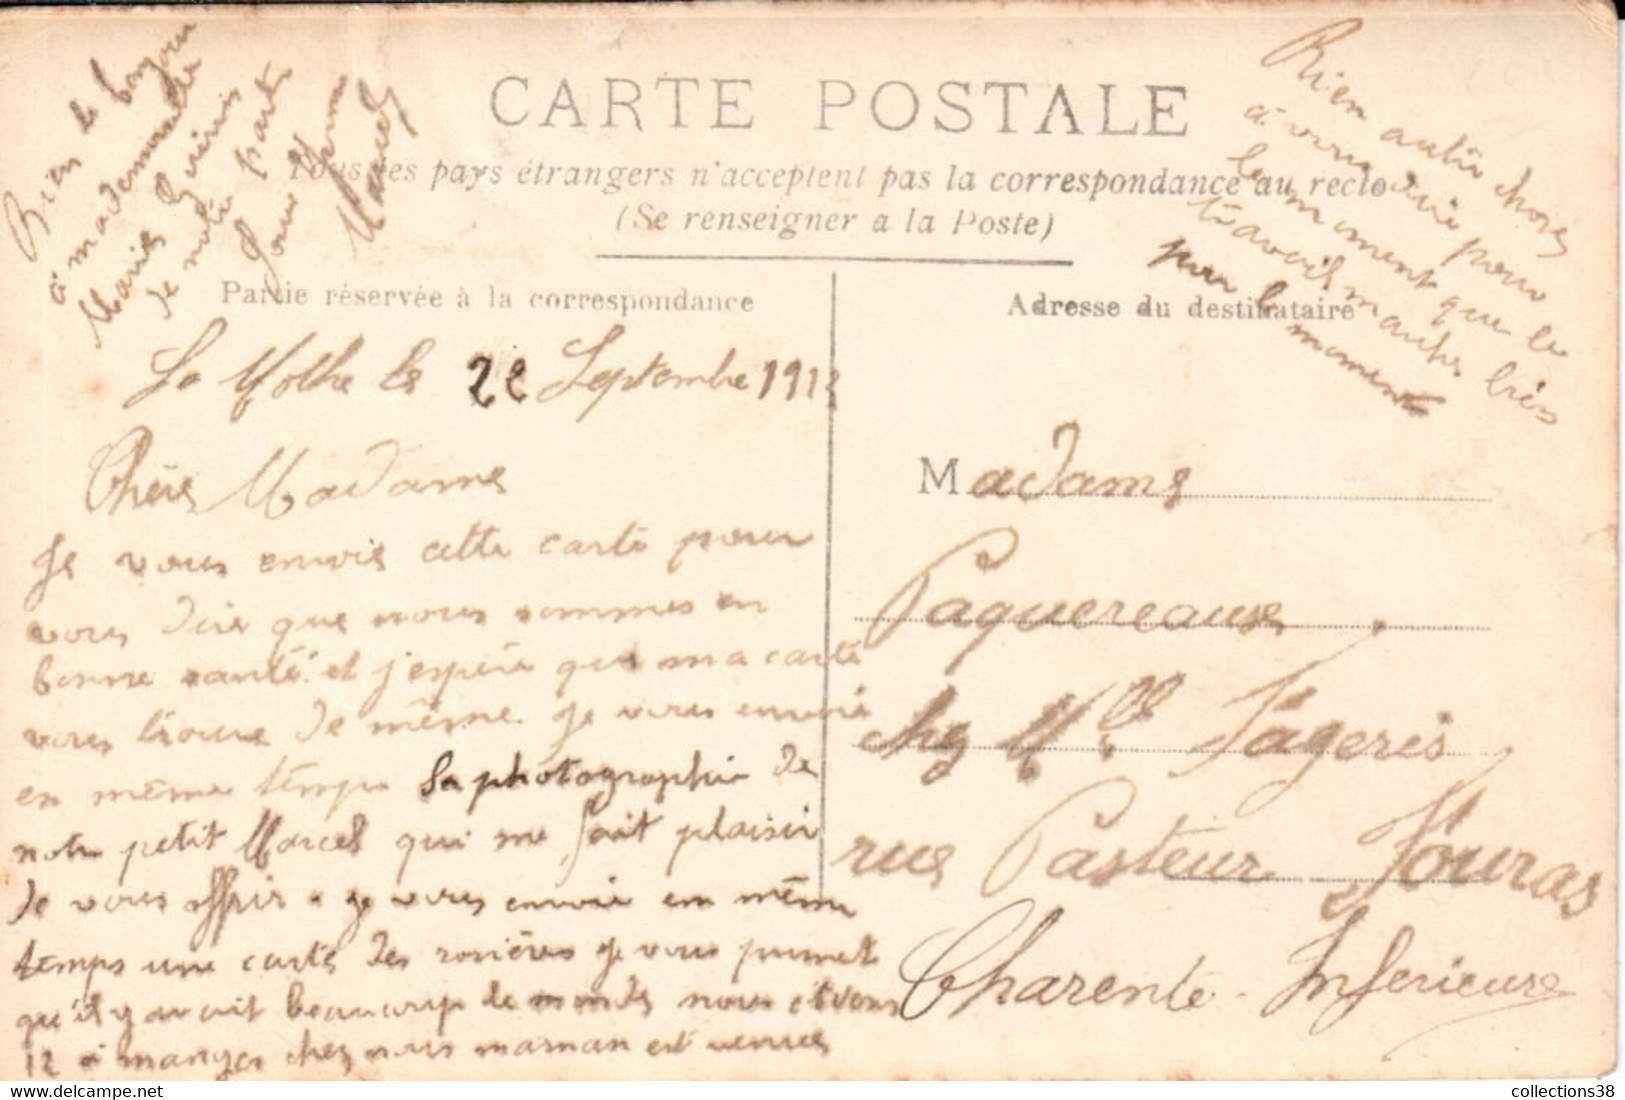 CARTE POSTALE
Tous les pays étrangers n'acceptent pas la correspondance au recto
(Se renseigner a la Poste)
Partie réservée à la correspondance
Adresse du destinataire
La Mothe le 22 Septembre 1913
Chère Madame
Je vous envoie cette carte pour
vous dire que nous sommes en
bonne santé et j'espère que ma carte
vous trouve de même je vous envoie
en même temps la photographie de
notre petit Marcel qui me fait plaisir
de vous offrir je vous envoie en même
temps une carte des rosières je vous promet
qu'il y avait beaucoup de monde nous étions
12 à manger chez nous maman est venue
Rien autre chose
à vous dire pour
le moment que le
travail marche très
pour le moment
Bien le bonjour
à mademoiselle
Marie
de notre part
Marcel
Madame
Paquereause
chez Mlle Sageris
rue Pasteur Fouras
Charente-Inferieure
collections38